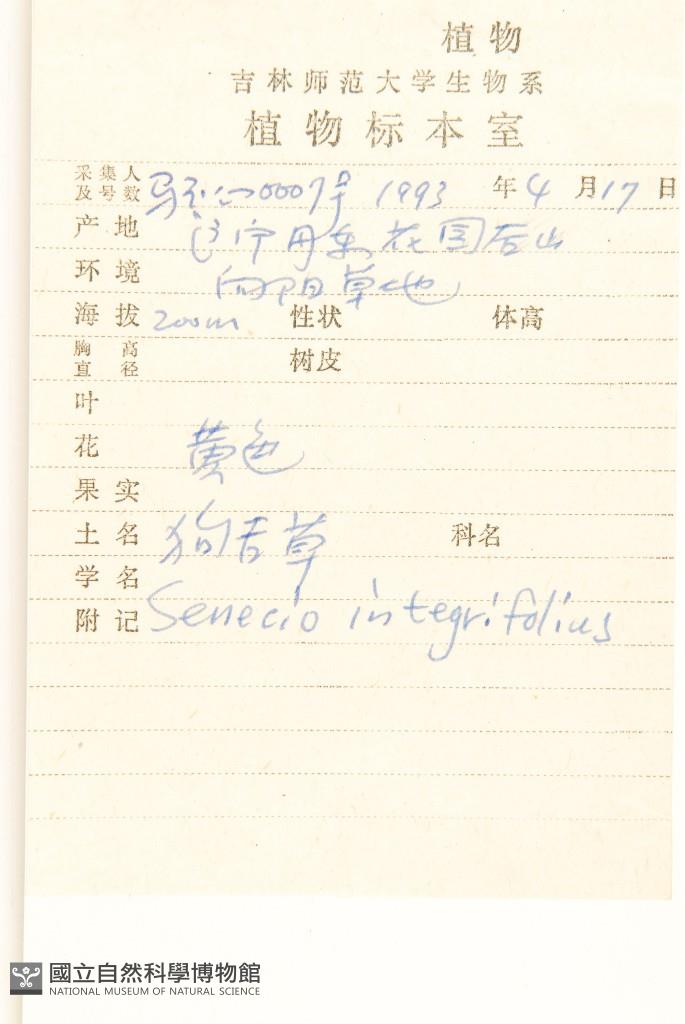 植物
吉林师范大学生物系
植物标本室
采集人及号数 0007号 1993 年 4 月 17 日
产地 辽宁丹东花园后山
环境 向阳草地
海拔 200m 性状 体高
胸高直径 树皮
叶
花 黄色
果实
土名 狗舌草 科名
学名
附记 Senecio integrifolius
國立自然科學博物館
NATIONAL MUSEUM OF NATURAL SCIENCE